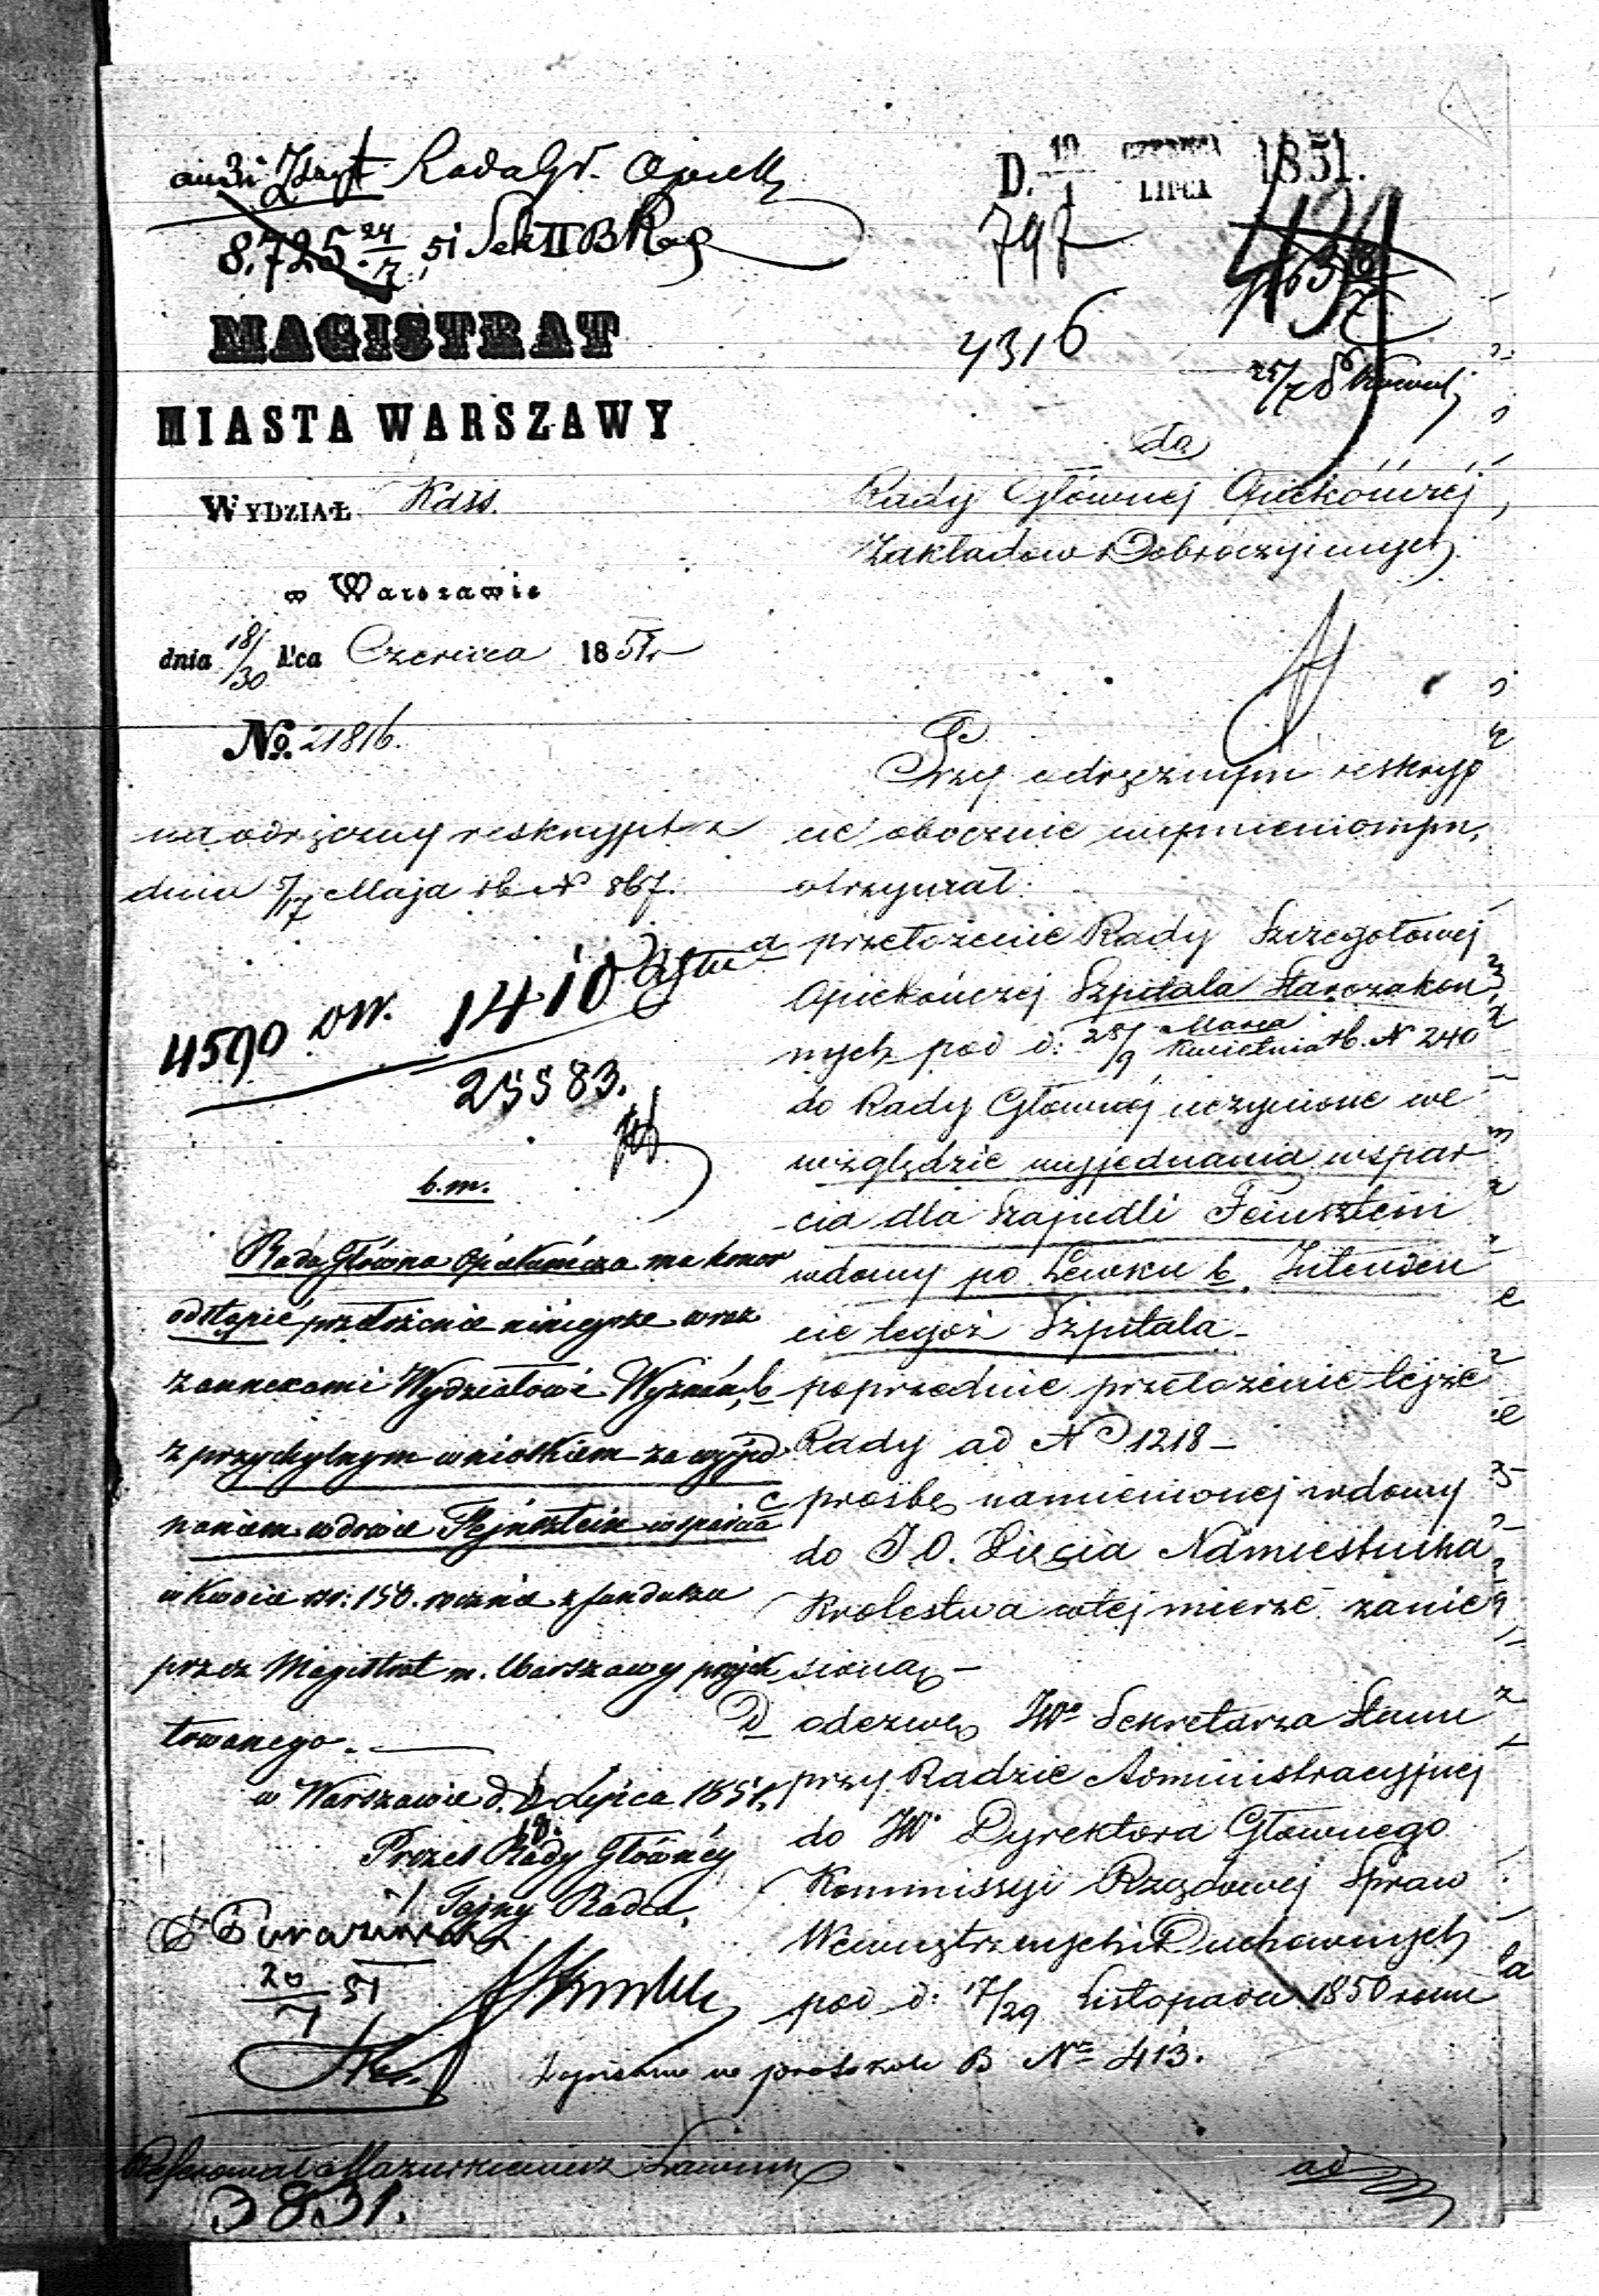 Rada Gł. Opiek
8,725 24/7 51 Sek II B
MAGISTRAT
MIASTA WARSZAWY
WYDZIAŁ Kass.
w Warszawie
dnia 18/30 Czerwca 1851r
No. 21816.
na odręczny reskrypt z
dnia 5/17 Maja rb N 867.
4590 1410
25583.
b.m.
Rada Główna Opiekuńcza ma honor
odstąpić przełożenie niniejsze wraz
z annexami Wydziałowi Wyznań,
z przychylnym wnioskiem za wyjed
naniem wdowie Fejnsztein wsparcia
w kwocie rsr: 150. rocznie z funduszu
przez Magistrat m. Warszawy projek
towanego.
w Warszawie d. Lipca 1851.
18.
Prezes Rady Głównéy
Tajny Radca,
20/7 51
D. 19/1 CZERWCA LIPCA 1851.
797
4316
25/7
do
Rady Głównej Opiekuńczej
Zakładow Dobroczynnych
Przy odręcznym reskryp
cie obocznie wymienionym,
otrzymał:
a przełożenie Rady Szczegołowej
Opiekuńczej Szpitala Starozakon
nych pod d: 28/9 Marca Kwietnia rb. N 240
do Rady Głównej uczynione we
względzie wyjednania wspar
-cia dla Szajndli Feinsztein
wdowy po Lewku b. Intenden
cie tegoż Szpitala -
b poprzednie przełożenie tejże
Rady ad No 1218 -
c prosbę namienionej wdowy
do J.O. Xięcia Namiestnika
Krolestwa w tej mierze zanie
sioną -
D odezwę JWo Sekretarza Stanu
przy Radzie Administracyjnej
do JW Dyrektora Głownego
Kommissyi Rządowej Spraw
Wewnętrznych i Duchownych
pod d: 17/29 Listopada 1850 roku
Zapisano w protokole B No 413.
Referował Mazurkiewicz Ławnik
3831.
ad